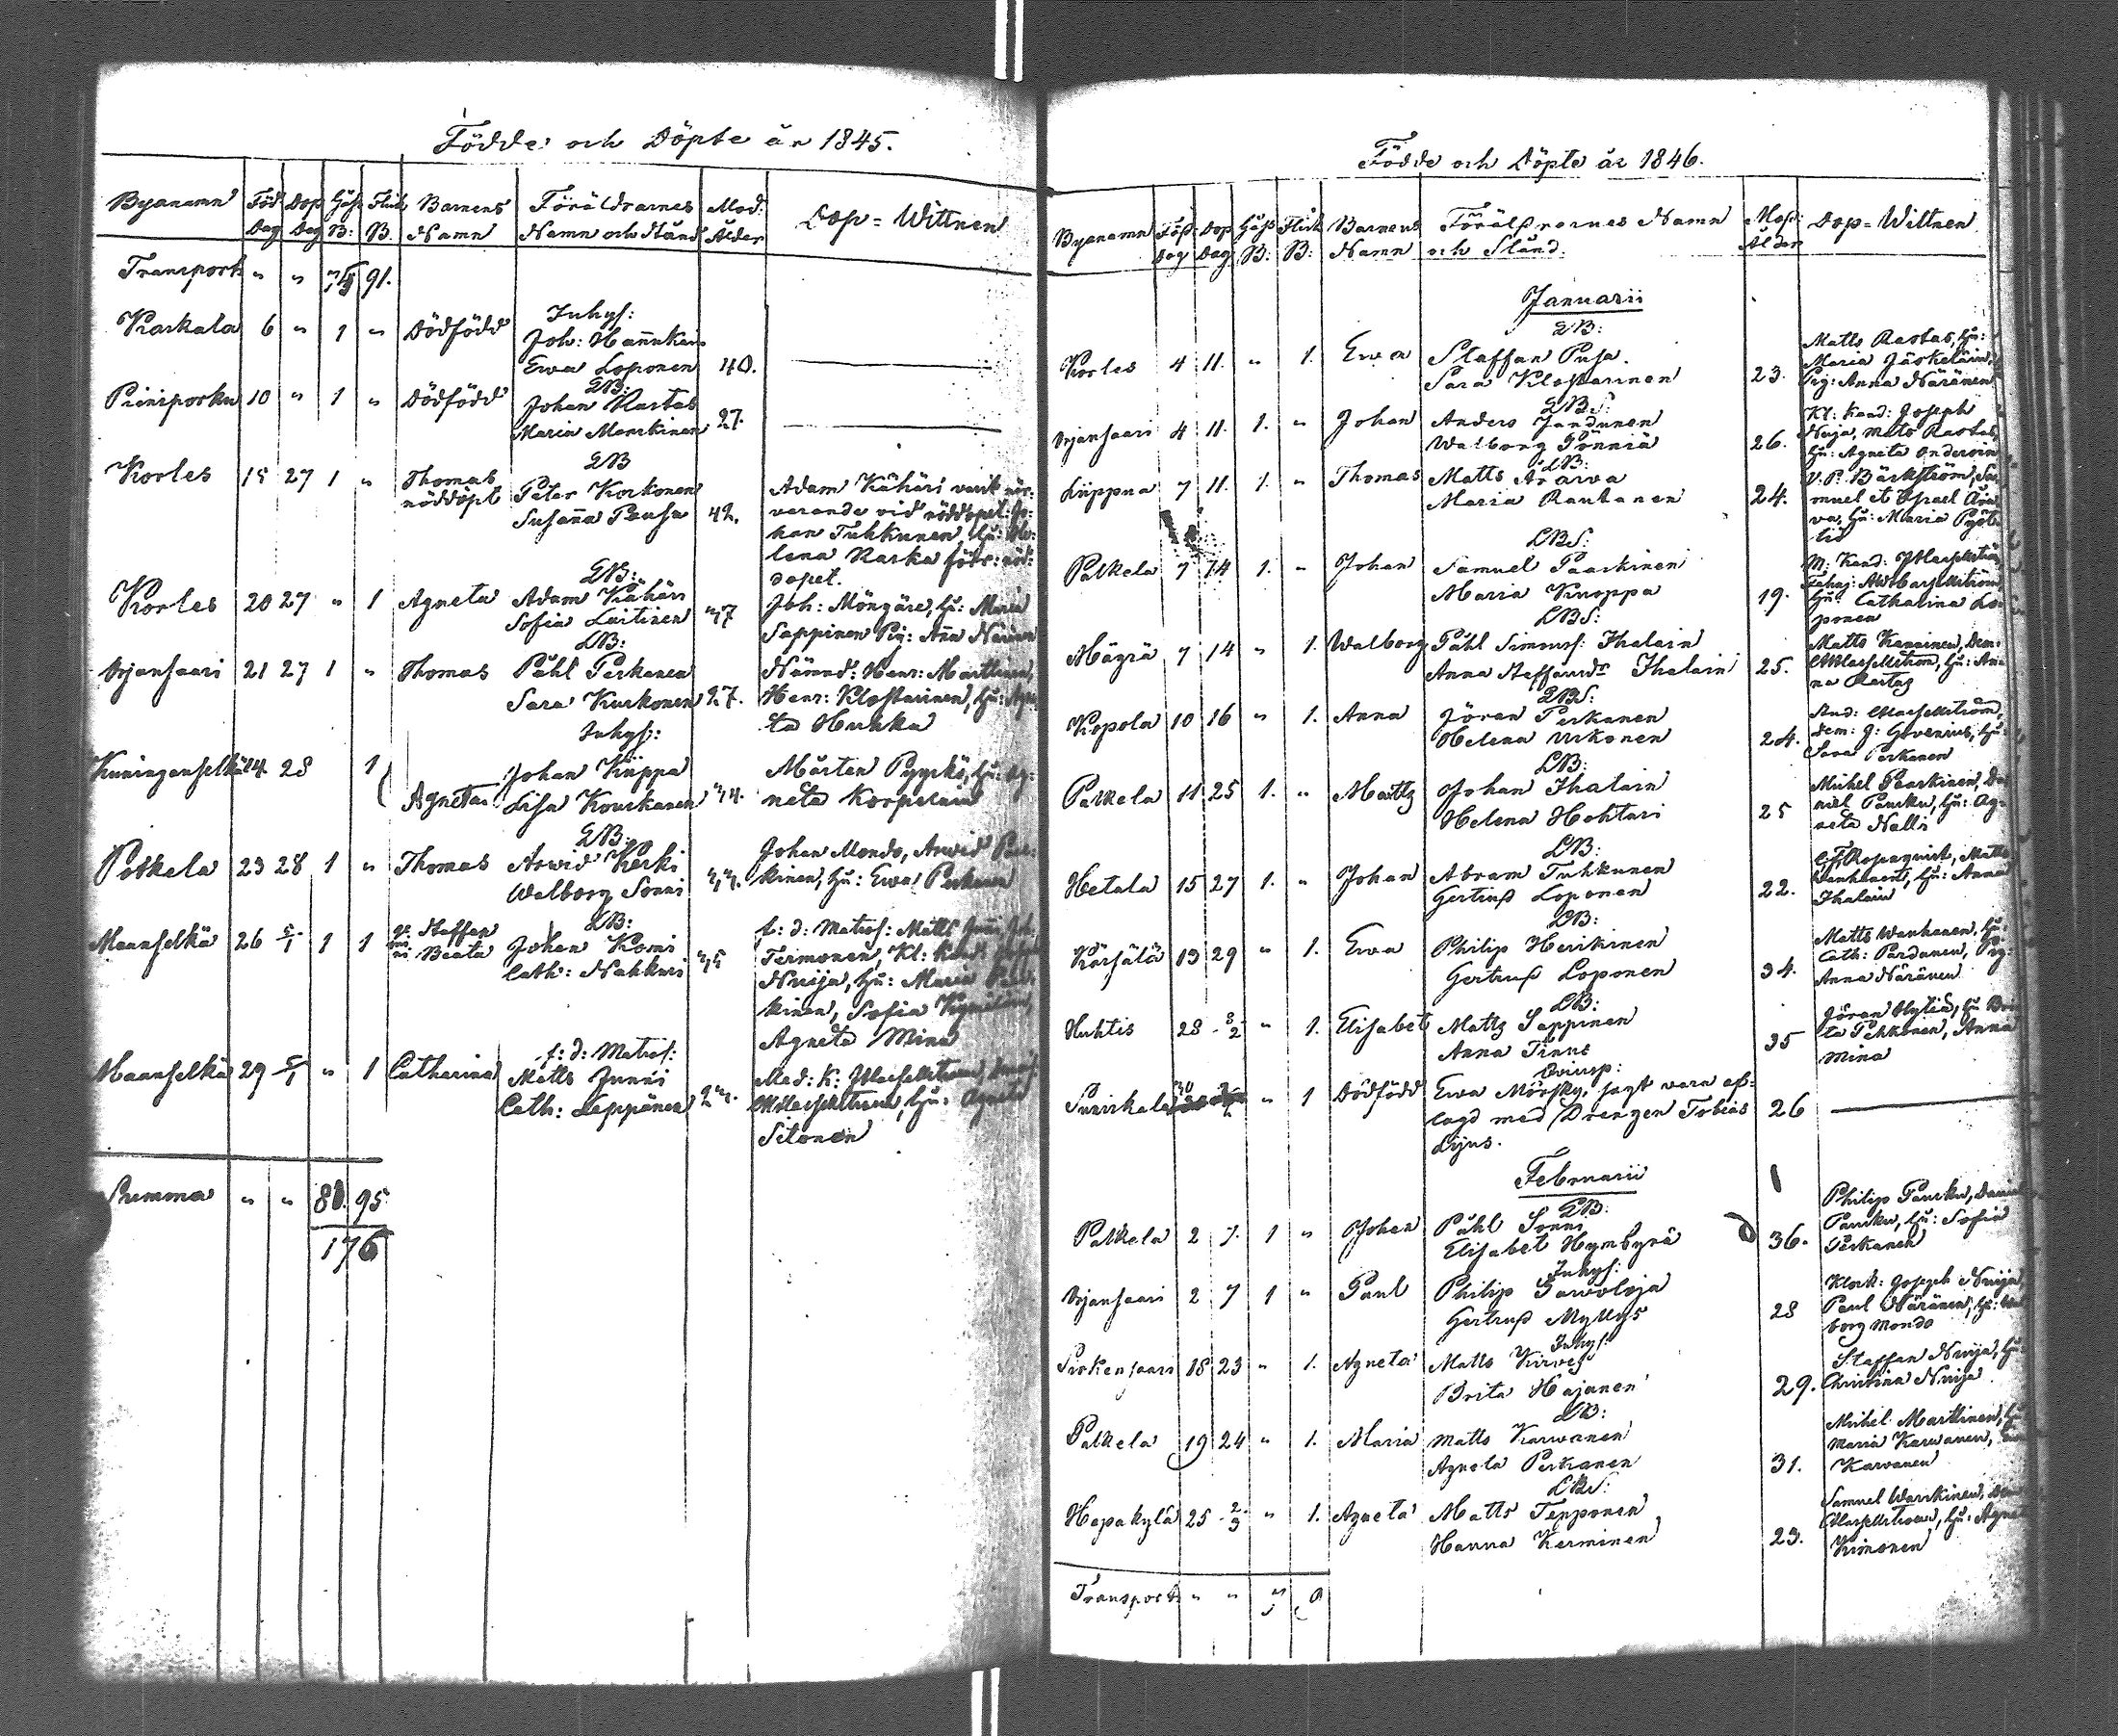 Födde och Döpte år 1845.
Byanamn Föd. Dag Dop Dag Göß. B: Flick B. Barnens Namn Föräldrarnes Namn och Stånd Mod. Ålder Dop=Wittnen
Transport " " 91.
Karkala 6 " 1 " Dödfödd Inhys:
Joh: Hannkain
Ewa Loponen 40.
LB:
Prinsporku 10 " 1 " Dödfödd Johan Rastas
Maria Monskinen 27.
LB
Korles 15 27 1 " Thomas nöddöpt Peter Korkonen
Susanna Pausu 42.
Adam Kähäri varit när-
varande vid nöddopet. Jo-
han Tuhkunen, hu: He-
lena Raska förr: nöd-
dopet.
LB:
Korles 20 27 " 1 Agneta Adam Kähäri
Sofia Laitinen
Joh: Möngäre, hu: Maria
Sappinen Pig: Anna Näränen
LB:
Orjansaari 21 27 1 " Thomas Påhl Perkanen
Sara Kurkonen 27.
Nämnd: Henr: Marttinen,
Henr: Klostarinen, hu: Agne-
ta Hukka
Inhys:
Kuningenselkä 24. 28 1 Agneta Johan Kiippa
Lisa Kourkanen
Mårten Pyyckö, hu: Ag-
neta Korpelain
LB:
Potkela 23 28 1 " Thomas Arwid Kerki
Walborg Sonni
Johan Mondo, Arwid Paer-
kinen, hu: Ewa Perkanen
LB:
Maanselkä 26 5/1 1 1 Staffan
Beata Johan Komi
Cath: Nahkuri
f: d: Matros: Matts Junni, Joh.
Termonen, Kl: Kand: Joseph
Nuija, hu: Maria
kinen, Sofia
Agneta Mina
f: d: Matros:
Maanselkä 29 5/1 " 1 Catharina Matts Junni
Cath: Leppänen
Med: K:
hu: Agneta
Sitonen
Summa " " 81. 95
176
Födde och Döpte år 1846.
Byanamn Föd. Dag Dop Dag Göß B: Flick B: Barnens Namn Föräldrarnes Namn och Stånd. Mod: Ålder Dop=Wittnen
Januarii
LB:
Korles 4 11. " 1. Ewa Staffan Pusa.
Sara Klostarinen 23.
Matts Rastas, hu:
Maria Jäskeläin,
Pig: Anna Näränen
LBS:
Orjansaari 4 11. 1. " Johan Anders Jandunen
Walborg Pönniä 26.
Kl: Kand: Joseph
Nuija, Mats Rastas,
hu: Agneta Onderoin
LB:
Liippua 7 11. 1. " Thomas Matts Arawa
Maria Rautanen 24.
V. P. Bärkström, Sa-
muel et Israel Ara-
va, hu: Maria Pyöt-
siä
LBS:
Palkela 7 14 1. " Johan Samuel Paaskinen
Maria Knoppa 19.
M: Kand:
hu: Catharina Lo-
ponen
LBS:
Mägrä 7 14 " 1. Walborg Påhl Simonss. Ihalain
Anna Staffansdr Ihalain 25.
Matts Kananen, Dem:
hu: An-
na Rastas
LBS:
Kopola 10 16 " 1. Anna Jöran Perkanen
Helena Urkonen 24.
dem: J: Govenius, hu:
Sara Perkanen
LB:
Palkela 11 25 1. " Matts Johan Ihalain
Helena Hohtari 25
Mihel Paaskinen, Da-
niel Paucku, hu: Ag-
neta Nalli
LB:
Hetala 15 27 1. " Johan Abram Tuhkunen
Gertrud Loponen 22.
Matts
Wanhanen, hu: Anna
Ihalain
LB:
Kärsälä 13 29 " 1. Ewa Philip Heikinen
Gertrud Loponen 34.
Matts Wanhanen, hu:
Cath: Pardanen, Pig:
Anna Näränen
LB:
Huhtis 28 8/2 " 1. Elisabet Matts Sappinen
Anna Tinus 35
Jöran Hytiä, hu Bri-
ta Pekkonen, Anna
Mina
Qvinsp:
Suurikala " 1 Dödfödd Ewa Mörsky, sagt vara af-
lagd med Drengen Tobias 26
Lijus.
Februarii
LB:
Palkela 2 7. 1 " Johan Påhl Sonni
Elisabet Hymbyrä 36.
Philip Paucku, Daniel
Paucku, hu: Sofia
Perkanen
Inhys:
Orjansaari 2 7 1 " Paul Philip Sawoloja
Gertrud Myllys 28
Klock: Joseph Nuija
Paul Näränen, hu: Wal-
borg Mondo
Inhys:
Pirkensaari 18 23 " 1. Agneta Matts Kirves
Brita Hajanen 29.
Staffan Nuija, hu:
Christina Nuija
LB:
Palkela 19 24 " 1. Maria Matts Karwanen
Agneta Perkanen 31.
Mihel Marttinen, hu:
Maria Karwanen,
Karwanen
LBS:
Hapakylä 25 2/3 " 1. Agneta Matts Tepponen
Hanna Kerminen 23.
Samuel Warskinen,
hu: Agneta
Kimonen
Transport " "